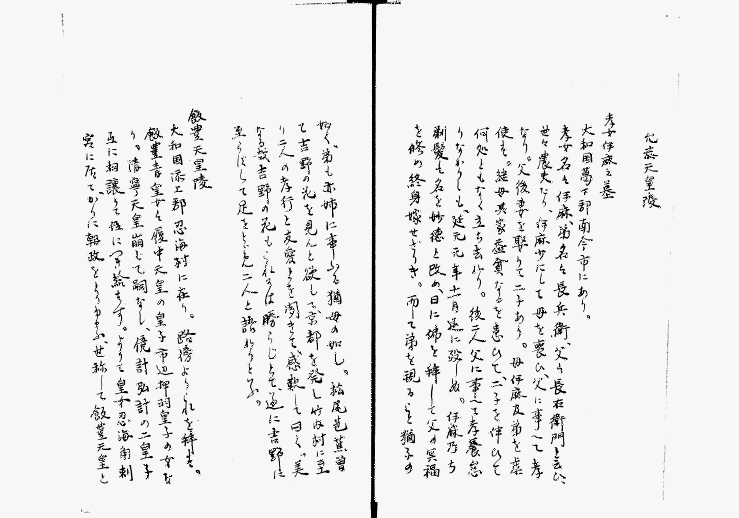 允恭天皇陵
孝女伊麻之墓
大和国葛下郡南今市にあり。
孝女名は伊麻、弟名は長兵衛、父は長右衛門と云ひ、
世々農夫なり。伊麻少にして母を喪ひ、父に事へて孝
なり。父後妻を娶りて二子あり。母伊麻及弟を虐
使す。継母其家益貧なるを患ひて二子を伴ひて
何処ともなく立ち去れり。後二人父に事へて孝養怠
りなかりしも、延元元年十一月遂に歿しぬ。伊麻乃ち
剃髪し名を妙徳と改め、日に仏を拝して父の冥福
を修め終身嫁せざりき。而して弟を視ること猶子の
如く、弟も亦姉に事ふる猶母の如し。松尾芭蕉曾
て吉野の花を見んと欲して京都を発し竹内村に至
り二人の孝行と友愛とを聞きて感歎して曰く、美
なる哉吉野の花もこれには勝らじとて、遂に吉野に
至らずして足をとどめ二人と語れりと云ふ。
飯豊天皇陵
大和国添上郡忍海村に在り。路傍よりこれを拝す。
飯豊青皇女は履中天皇の皇子市辺押羽皇子の女な
り。清寧天皇崩じて嗣なし、億計弘計の二皇子
互に相譲りて位につき給はず。よりて皇女忍海角刺
宮に居てかりに朝政をとり給ふ、世称して飯豊天皇と